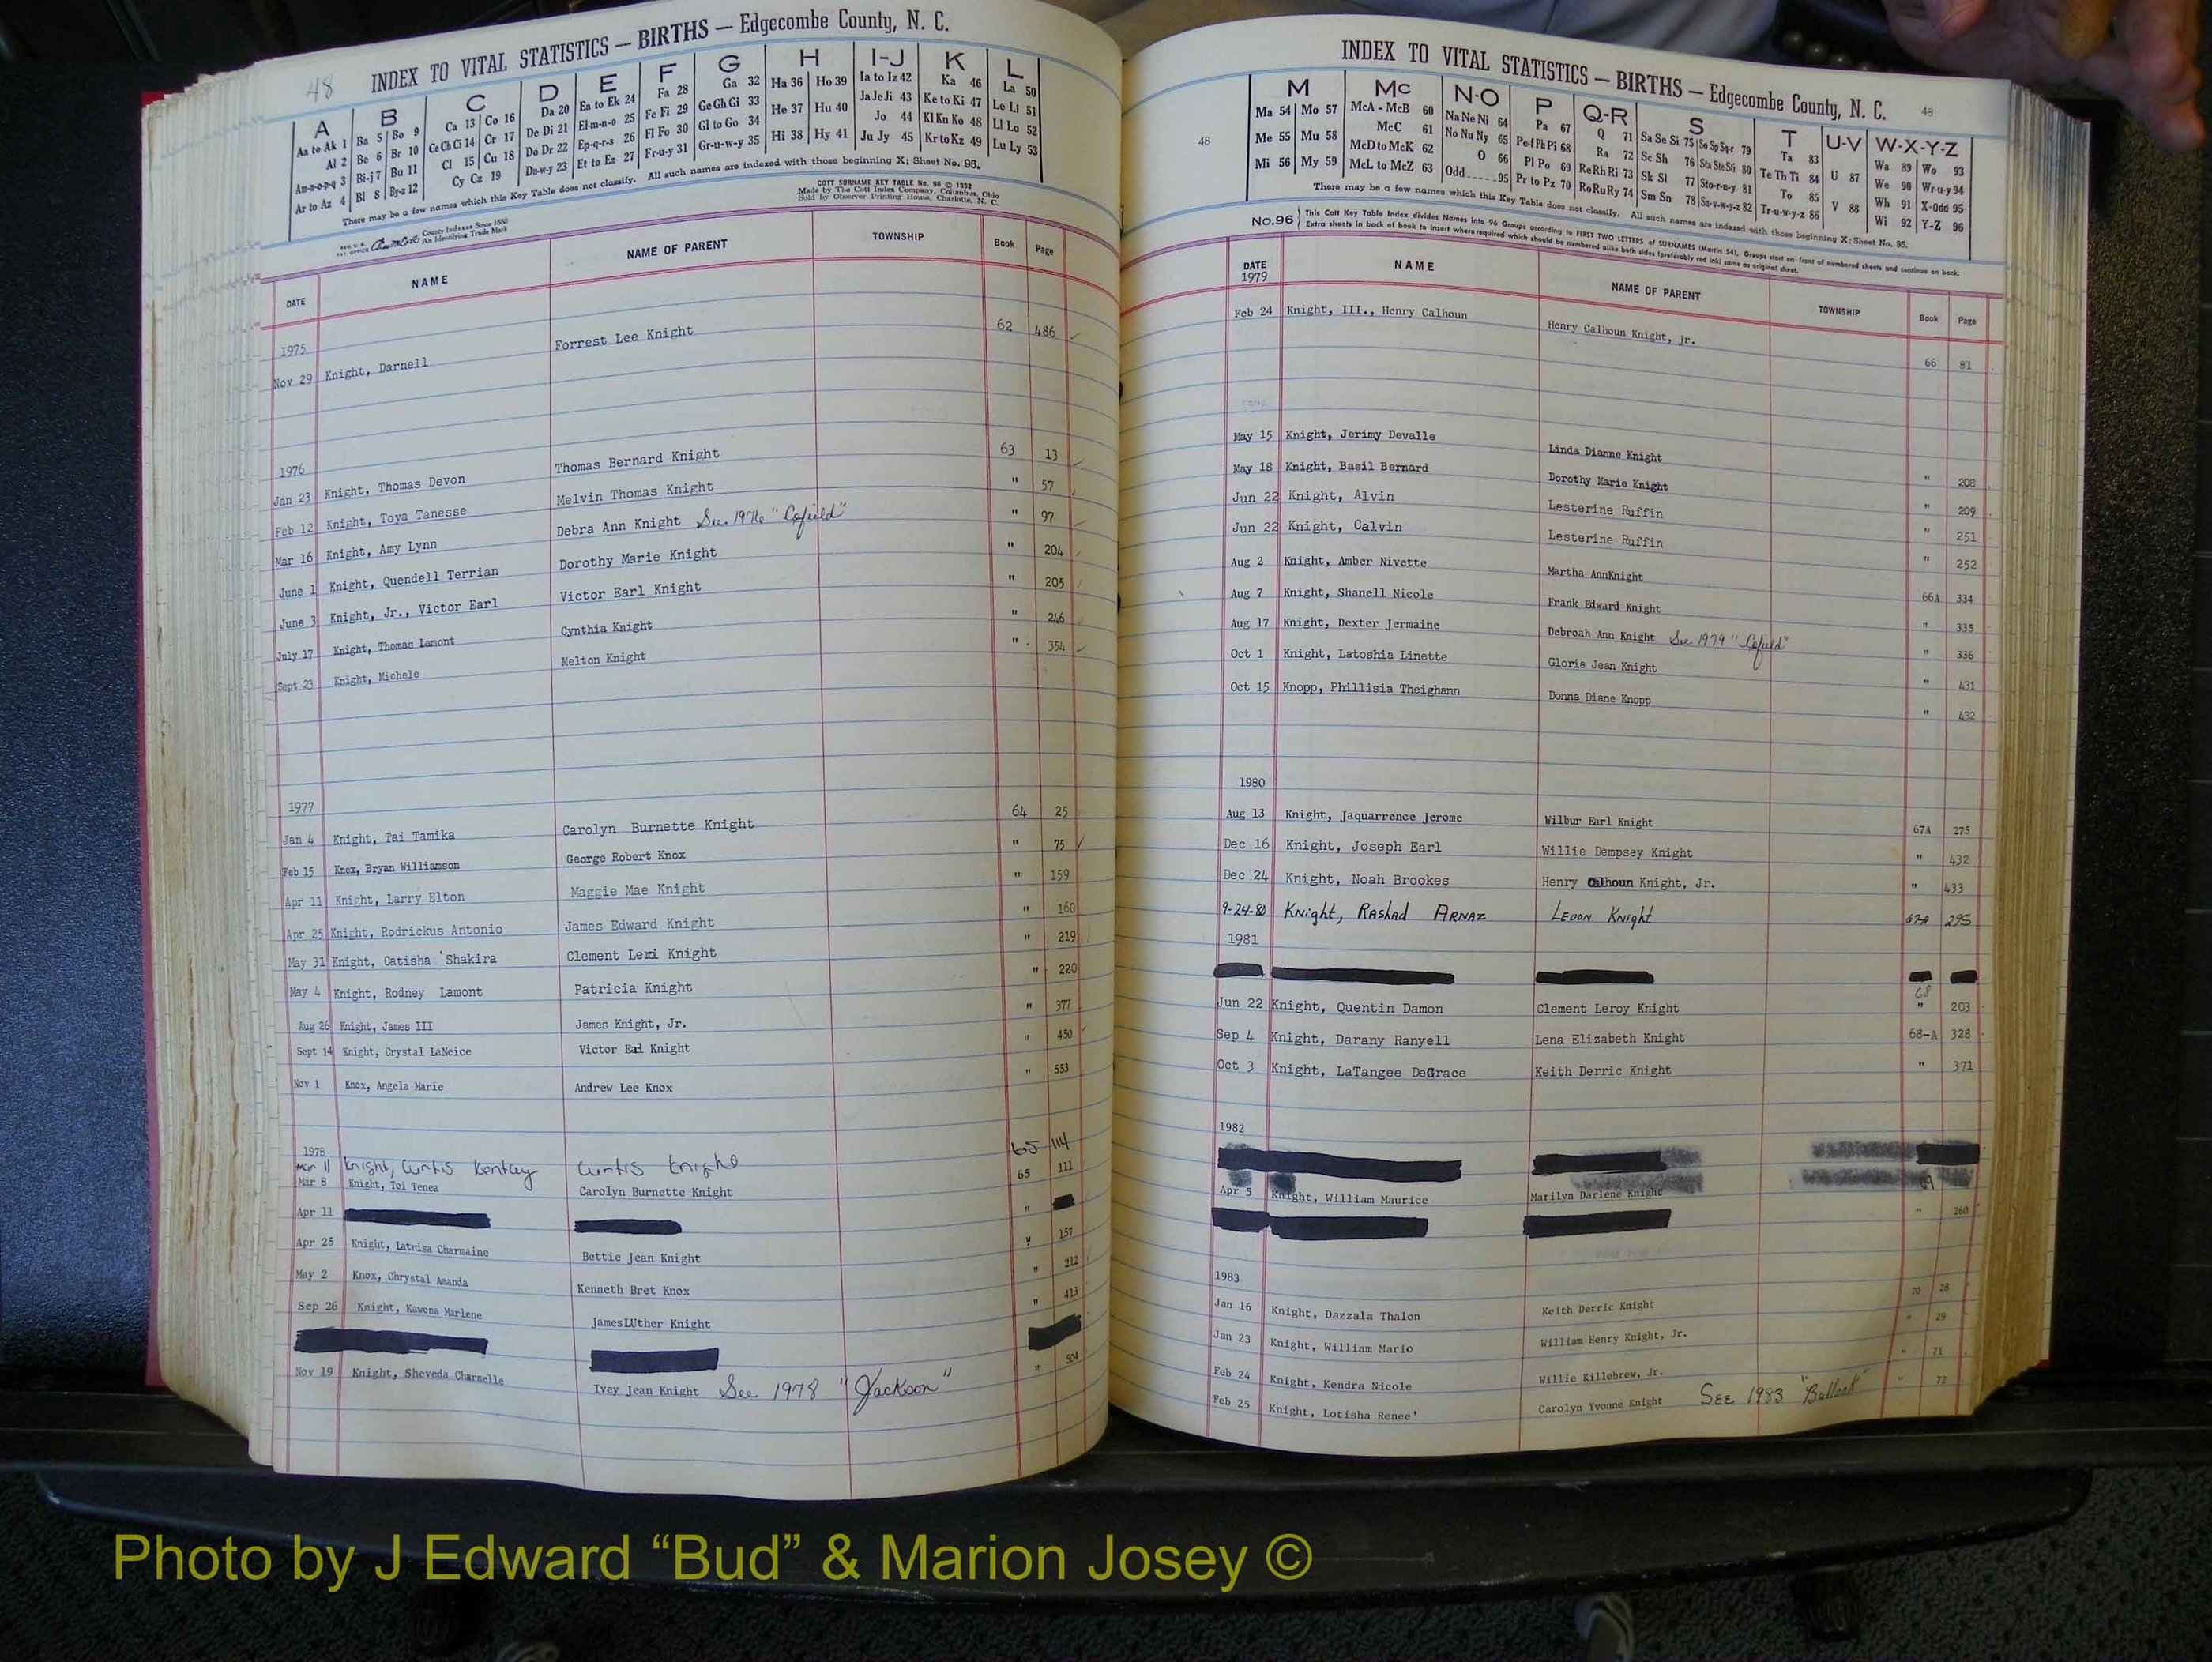 48
INDEX TO VITAL STATISTICS — BIRTHS — Edgecombe County, N. C.
A B C D E F G H I-J K L
Aa to Ak 1 Ba 5 Bo 9 Ca 13 Co 16 Da 20 Ea to Ek 24 Fa 28 Ga 32 Ha 36 Ho 39 Ia to Iz 42 Ka 46 La 50
Al 2 Be 6 Br 10 Ce Ch Ci 14 Cr 17 De Di 21 El-m-n-o 25 Fe Fi 29 Ge Gh Gi 33 He 37 Hu 40 Ja Je Ji 43 Ke to Ki 47 Le Li 51
Am-n-o-p-q 3 Bi-j 7 Bu 11 Cl 15 Cu 18 Do Dr 22 Ep-q-r-s 26 Fl Fo 30 Gl to Go 34 Hi 38 Hy 41 Jo 44 Kl Kn Ko 48 Ll Lo 52
Ar to Az 4 Bl 8 By-z 12 Cy Cz 19 Du-w-y 23 Et to Ez 27 Fr-u-y 31 Gr-u-w-y 35 Ju Jy 45 Kr to Kz 49 Lu Ly 53
There may be a few names which this Key Table does not classify. All such names are indexed with those beginning X; Sheet No. 95.
County Indexes Since 1888
An Identifying Trade Mark
COTT SURNAME KEY TABLE No. 96 © 1952
Made by The Cott Index Company, Columbus, Ohio
Sold by Observer Printing House, Charlotte, N. C.
DATE NAME NAME OF PARENT TOWNSHIP Book Page
1975
Nov 29 Knight, Darnell Forrest Lee Knight 62 486
1976
Jan 23 Knight, Thomas Devon Thomas Bernard Knight 63 13
Feb 12 Knight, Toya Tanesse Melvin Thomas Knight " 57
Mar 16 Knight, Amy Lynn Debra Ann Knight See 1976 "Cofield" " 97
June 1 Knight, Quendell Terrian Dorothy Marie Knight " 204
June 3 Knight, Jr., Victor Earl Victor Earl Knight " 205
July 17 Knight, Thomas Lamont Cynthia Knight " 246
Sept 23 Knight, Michele Melton Knight " 354
1977
Jan 4 Knight, Tai Tamika Carolyn Burnette Knight 64 25
Feb 15 Knox, Bryan Williamson George Robert Knox " 75
Apr 11 Knight, Larry Elton Maggie Mae Knight " 159
Apr 25 Knight, Rodrickus Antonio James Edward Knight " 160
May 31 Knight, Catisha 'Shakira Clement Knight " 219
May 4 Knight, Rodney Lamont Patricia Knight " 220
Aug 26 Knight, James III James Knight, Jr. " 377
Sept 14 Knight, Crystal LaNeice Victor Knight " 450
Nov 1 Knox, Angela Marie Andrew Lee Knox " 553
1978
Mar 11 Knight, Curtis Kentley Curtis Knight 65 114
Mar 8 Knight, Toi Tenea Carolyn Burnette Knight 65 111
Apr 11 "
Apr 25 Knight, Latrisa Charmaine Bettie Jean Knight " 157
May 2 Knox, Chrystal Amanda Kenneth Bret Knox " 212
Sep 26 Knight, Kawona Marlene JamesLUther Knight " 413
Nov 19 Knight, Sheveda Charnelle Ivey Jean Knight See 1978 "Jackson" " 504
INDEX TO VITAL STATISTICS — BIRTHS — Edgecombe County, N. C.
48
48
M Mc N-O P Q-R S T U-V W-X-Y-Z
Ma 54 Mo 57 McA - McB 60 Na Ne Ni 64 Pa 67 Q 71 Sa Se Si 75 So Sp Sq-r 79 Ta 83 U 87 Wa 89 Wo 93
Me 55 Mu 58 McC 61 No Nu Ny 65 Pe-f Ph Pi 68 Ra 72 Sc Sh 76 Sta Ste Sti 80 Te Th Ti 84 V 88 We 90 Wr-u-y 94
Mi 56 My 59 McD to McK 62 O 66 Pl Po 69 Re Rh Ri 73 Sk Sl 77 Sto-r-u-y 81 To 85 Wh 91 X-Odd 95
McL to McZ 63 Odd 95 Pr to Pz 70 Ro Ru Ry 74 Sm Sn 78 Su-v-w-y-z 82 Tr-u-w-y-z 86 Wi 92 Y-Z 96
There may be a few names which this Key Table does not classify. All such names are indexed with those beginning X; Sheet No. 95.
No. 96 This Cott Key Table Index divides Names into 96 Groups according to FIRST TWO LETTERS of SURNAMES (Martin 54). Groups start on front of numbered sheets and continue on back.
Extra sheets in back of book to insert where required which should be numbered alike both sides (preferably red ink) same as original sheet.
DATE NAME NAME OF PARENT TOWNSHIP Book Page
1979
Feb 24 Knight, III., Henry Calhoun Henry Calhoun Knight, Jr. 66 81
May 15 Knight, Jerimy Devalle Linda Dianne Knight " 208
May 18 Knight, Basil Bernard Dorothy Marie Knight " 209
Jun 22 Knight, Alvin Lesterine Ruffin " 251
Jun 22 Knight, Calvin Lesterine Ruffin " 252
Aug 2 Knight, Amber Nivette Martha AnnKnight 66A 334
Aug 7 Knight, Shanell Nicole Frank Edward Knight " 335
Aug 17 Knight, Dexter Jermaine Debroah Ann Knight See 1979 "Cofield" " 336
Oct 1 Knight, Latoshia Linette Gloria Jean Knight " 431
Oct 15 Knopp, Phillisia Theighann Donna Diane Knopp " 432
1980
Aug 13 Knight, Jaquarrence Jerome Wilbur Earl Knight 67A 275
Dec 16 Knight, Joseph Earl Willie Dempsey Knight " 432
Dec 24 Knight, Noah Brookes Henry Calhoun Knight, Jr. " 433
9-24-80 Knight, Rashad Arnaz Levon Knight 67A 295
1981
68
Jun 22 Knight, Quentin Damon Clement Leroy Knight " 203
Sep 4 Knight, Darany Ranyell Lena Elizabeth Knight 68-A 328
Oct 3 Knight, LaTangee DeGrace Keith Derric Knight " 371
1982
Apr 5 Knight, William Maurice Marilyn Darlene Knight " 260
1983
Jan 16 Knight, Dazzala Thalon Keith Derric Knight 70 28
Jan 23 Knight, William Mario William Henry Knight, Jr. " 29
Feb 24 Knight, Kendra Nicole Willie Killebrew, Jr. " 71
Feb 25 Knight, Lotisha Renee' Carolyn Yvonne Knight SEE 1983 "Bullock" " 72
Photo by J Edward “Bud” & Marion Josey ©